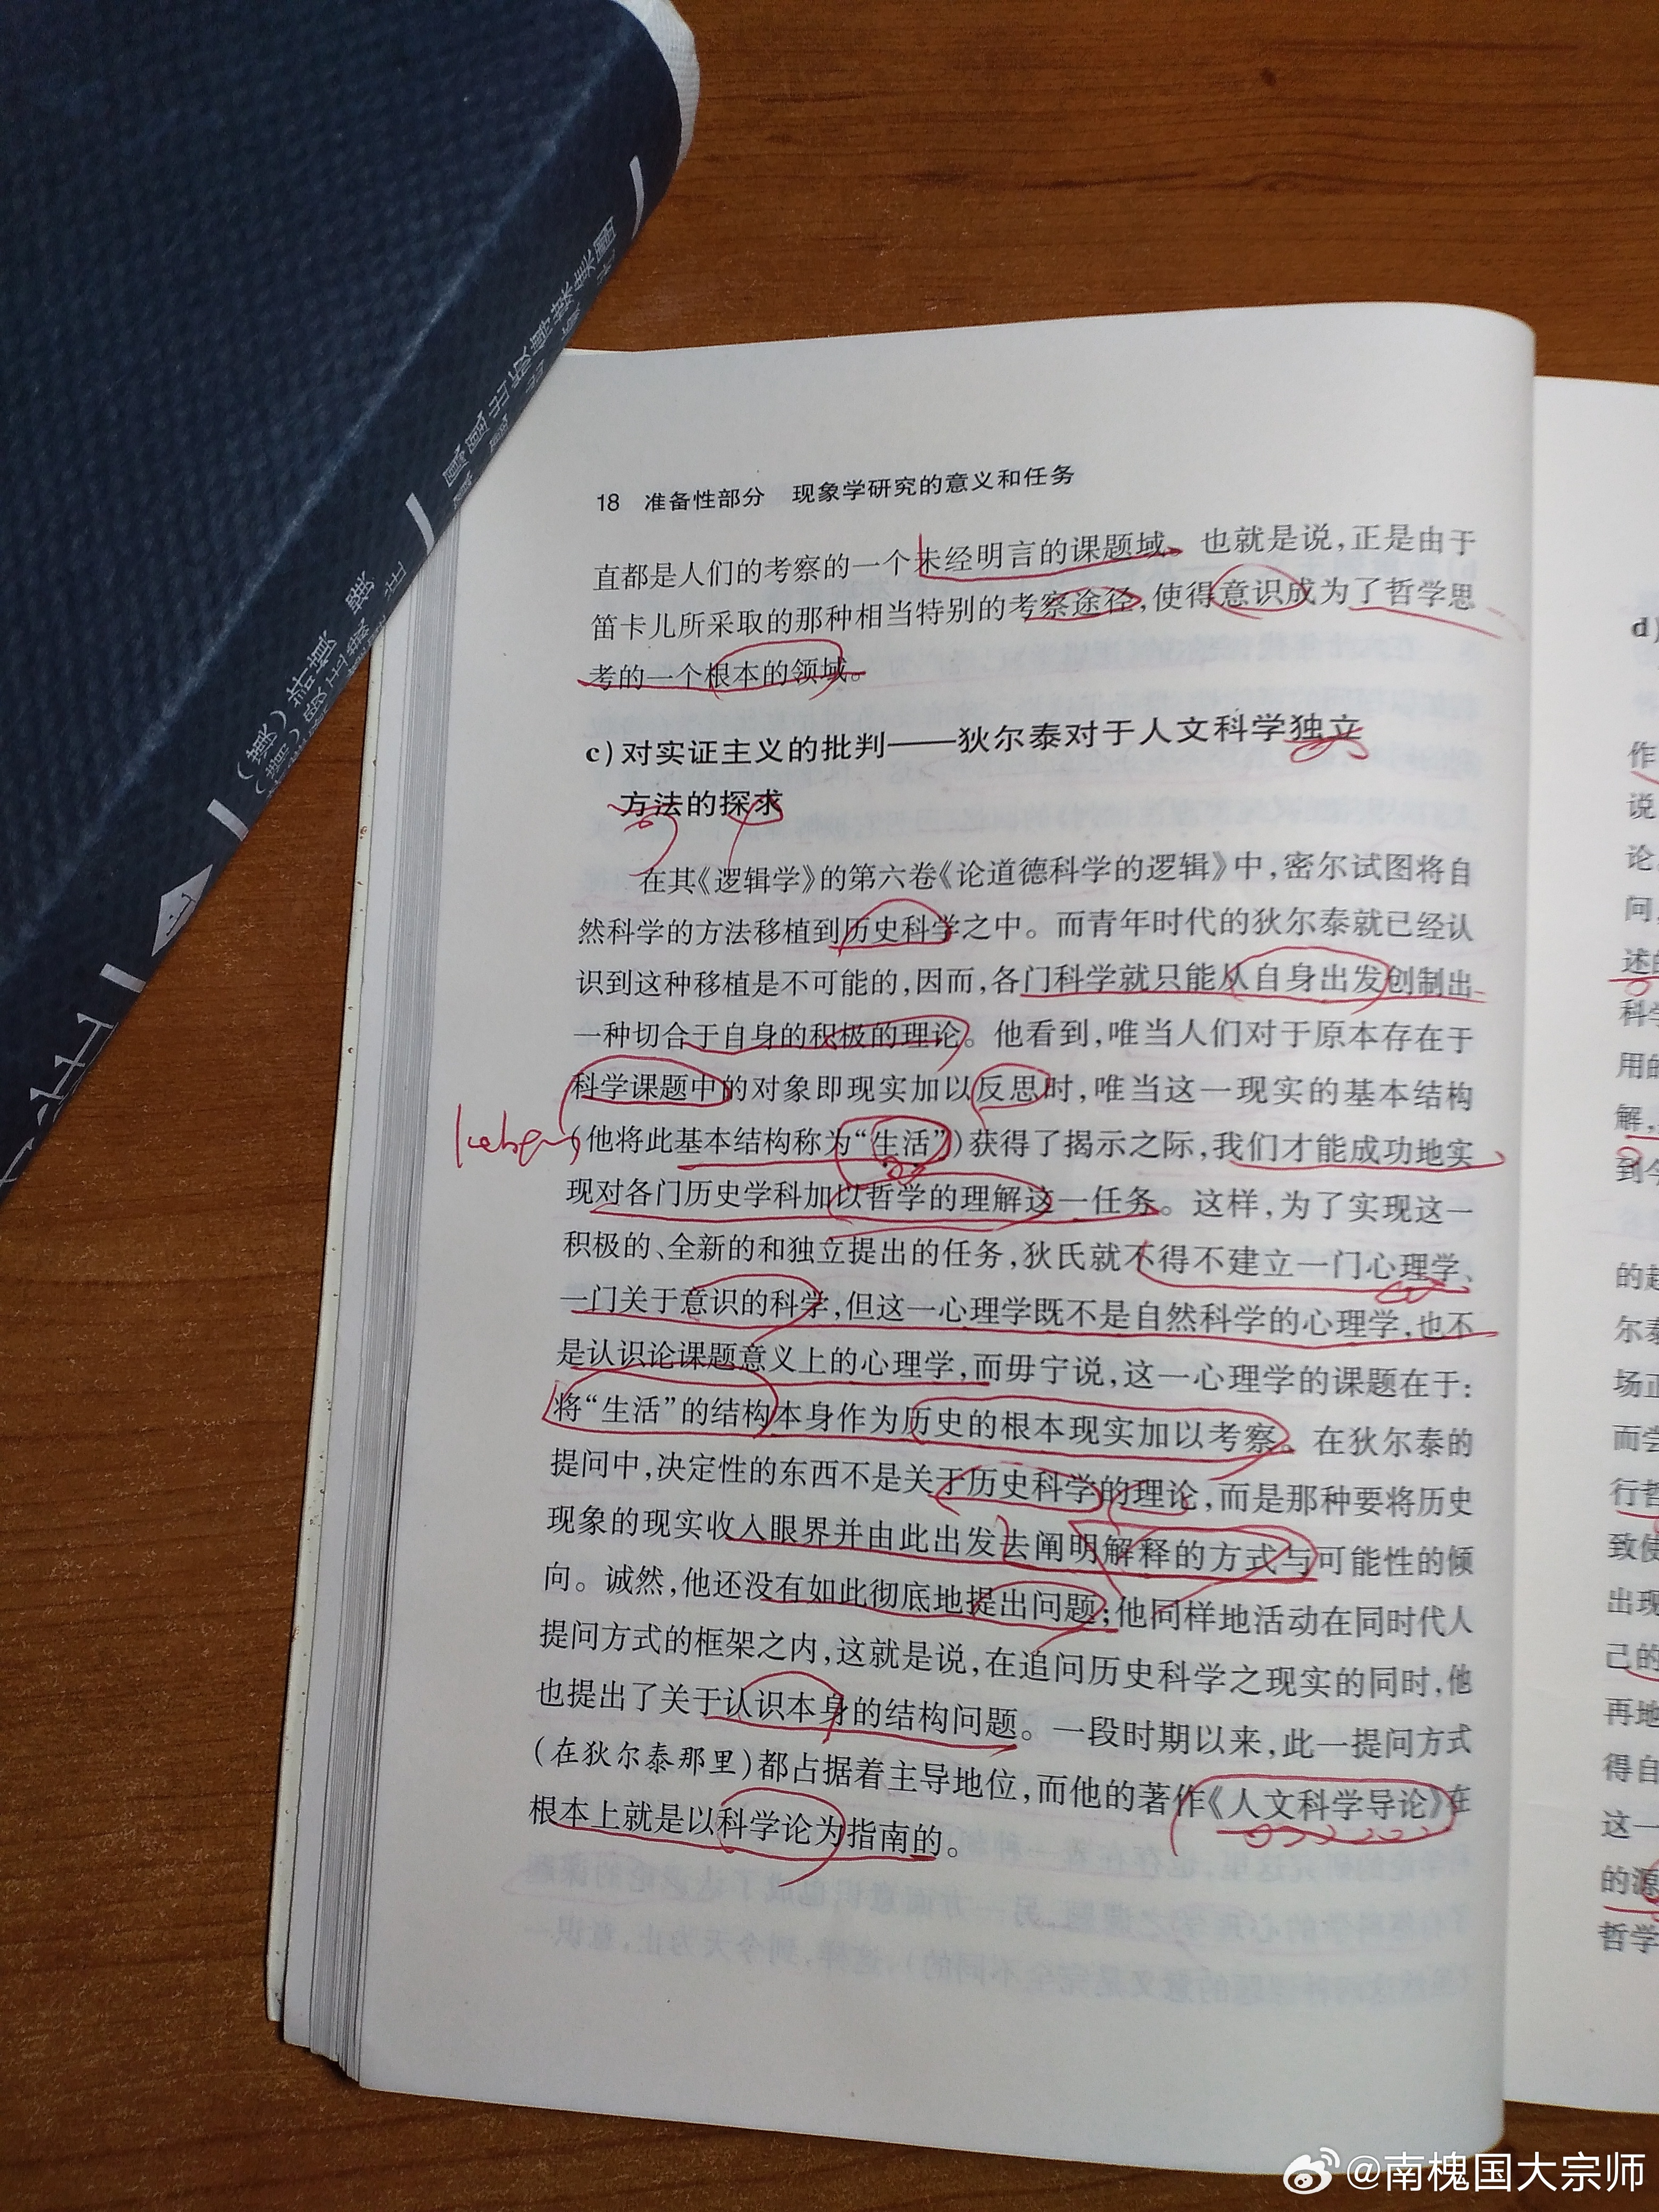 18 准备性部分 现象学研究的意义和任务
直都是人们的考察的一个未经明言的课题域。也就是说,正是由于
笛卡儿所采取的那种相当特别的考察途径,使得意识成为了哲学思
考的一个根本的领域。
c) 对实证主义的批判——狄尔泰对于人文科学独立
方法的探求
在其《逻辑学》的第六卷《论道德科学的逻辑》中,密尔试图将自
然科学的方法移植到历史科学之中。而青年时代的狄尔泰就已经认
识到这种移植是不可能的,因而,各门科学就只能从自身出发创制出
一种切合于自身的积极的理论。他看到,唯当人们对于原本存在于
科学课题中的对象即现实加以反思时,唯当这一现实的基本结构
(他将此基本结构称为“生活”)获得了揭示之际,我们才能成功地实
现对各门历史学科加以哲学的理解这一任务。这样,为了实现这一
积极的、全新的和独立提出的任务,狄氏就不得不建立一门心理学、
一门关于意识的科学,但这一心理学既不是自然科学的心理学,也不
是认识论课题意义上的心理学,而毋宁说,这一心理学的课题在于:
将“生活”的结构本身作为历史的根本现实加以考察。在狄尔泰的
提问中,决定性的东西不是关于历史科学的理论,而是那种要将历史
现象的现实收入眼界并由此出发去阐明解释的方式与可能性的倾
向。诚然,他还没有如此彻底地提出问题;他同样地活动在同时代人
提问方式的框架之内,这就是说,在追问历史科学之现实的同时,他
也提出了关于认识本身的结构问题。一段时期以来,此一提问方式
(在狄尔泰那里)都占据着主导地位,而他的著作《人文科学导论》在
根本上就是以科学论为指南的。
d)
作
说
论
问,
述的
科学
用的
解,
到今
的起
尔泰
场正
而尝
行哲
致使
出现
己的
再地
得自
这一
的源
哲学
@南槐国大宗师